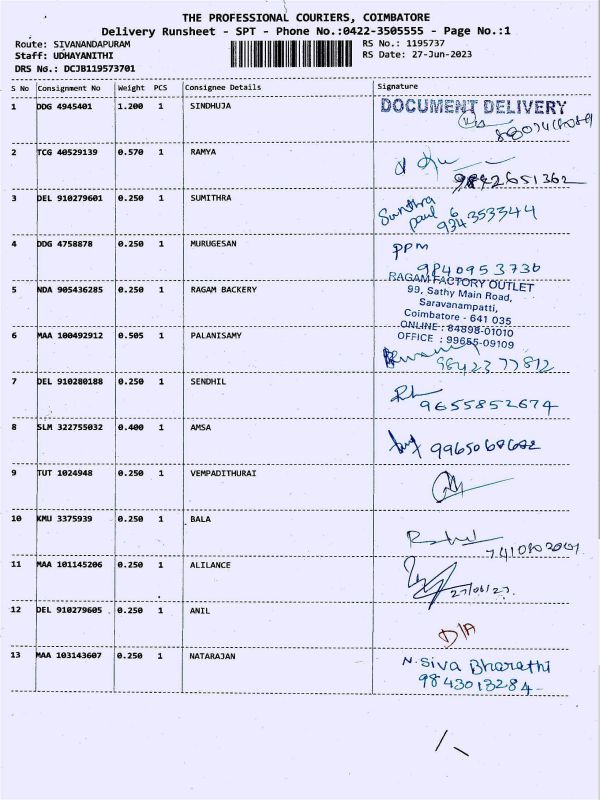 THE PROFESSIONAL COURIERS, COIMBATORE
Delivery Runsheet - SPT - Phone No.:0422-3505555 - Page No.:1
Route: SIVANANDAPURAM RS No.: 1195737
Staff: UDHAYANITHI RS Date: 27-Jun-2023
DRS No.: DCJB119573701
S No Consignment No Weight PCS Consignee Details Signature
1 DDG 4945401 1.200 1 SINDHUJA DOCUMENT DELIVERY
2 TCG 40529139 0.570 1 RAMYA
9842651362
3 DEL 910279601 0.250 1 SUMITHRA Sumithra
paul 6
934353344
4 DDG 4758878 0.250 1 MURUGESAN ppm
9840953736
RAGAM FACTORY OUTLET
5 NDA 905436285 0.250 1 RAGAM BACKERY 99, Sathy Main Road,
Saravanampatti,
Coimbatore - 641 035
ONLINE : 84898-01010
6 MAA 100492912 0.505 1 PALANISAMY OFFICE : 99655-09109
9842377812
7 DEL 910280188 0.250 1 SENDHIL
9655852674
8 SLM 322755032 0.400 1 AMSA
9 TUT 1024948 0.250 1 VEMPADITHURAI
10 KMU 3375939 0.250 1 BALA
11 MAA 101145206 0.250 1 ALILANCE
27/06/23.
12 DEL 910279605 0.250 1 ANIL
D/A
13 MAA 103143607 0.250 1 NATARAJAN N. Siva Bharathi
9843013284